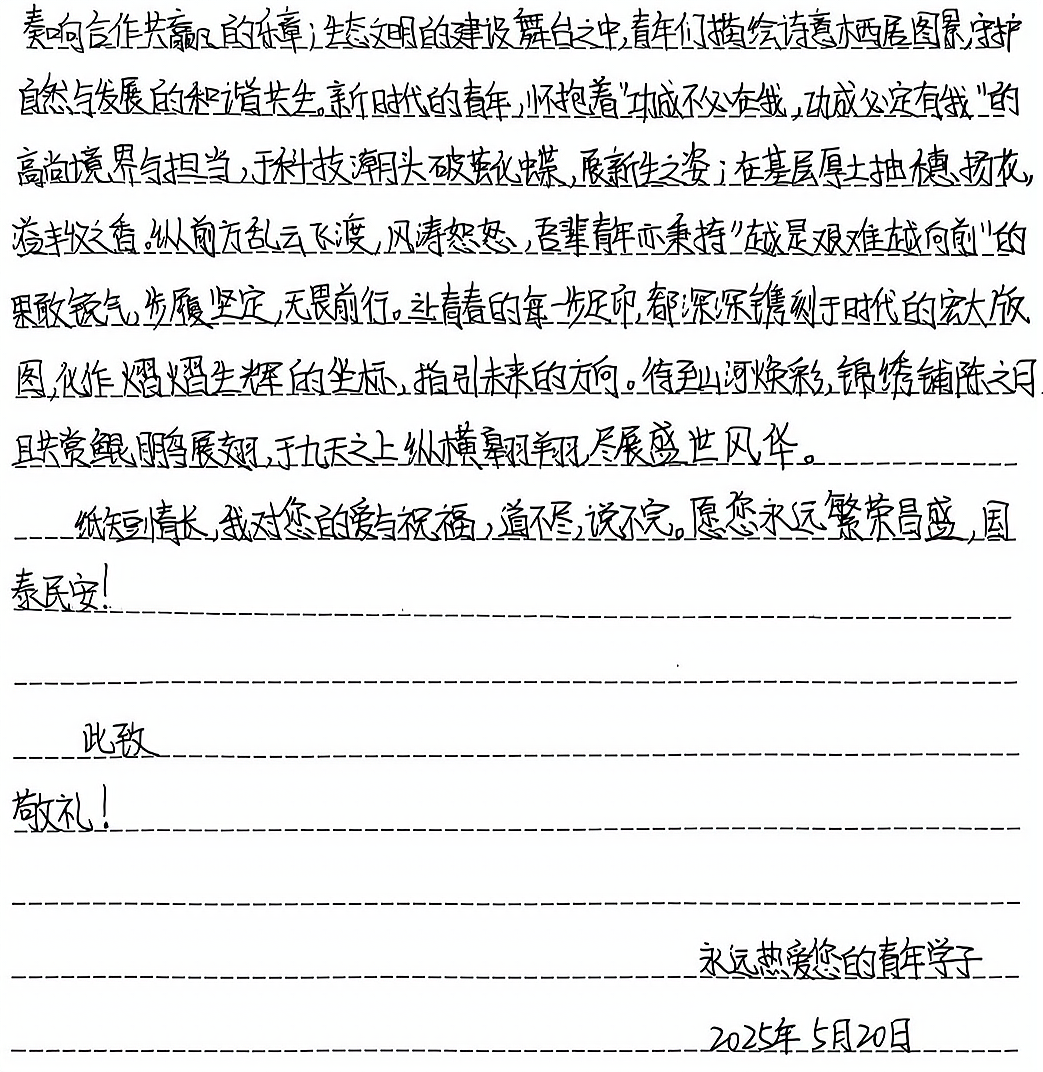 奏响合作共赢的乐章；生态文明的建设舞台之中,青年们描绘诗意栖居图景,守护
自然与发展的和谐共生。新时代的青年,怀抱着"功成不必在我,功成必定有我"的
高尚境界与担当,于科技潮头破茧化蝶,展新生之姿；在基层厚土抽穗扬花,
溢丰收之香。纵前方乱云飞渡,风涛怒怒,吾辈青年亦秉持"越是艰难越向前"的
果敢锐气,步履坚定,无畏前行。让青春的每一步足印,都深深镌刻于时代的宏大版
图,化作熠熠生辉的坐标,指引未来的方向。待到山河焕彩,锦绣铺陈之日,
且共赏鲲鹏展翅,于九天之上纵横翱翔,尽展盛世风华。
纸短情长,我对您的爱与祝福,道不尽,说不完。愿您永远繁荣昌盛,国
泰民安!
此致
敬礼!
永远热爱您的青年学子
2025年5月20日